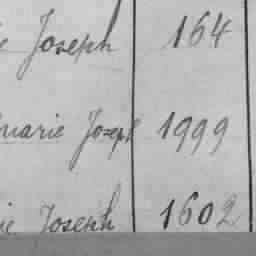 Joseph 164
marie Joseph 1999
Joseph 1602